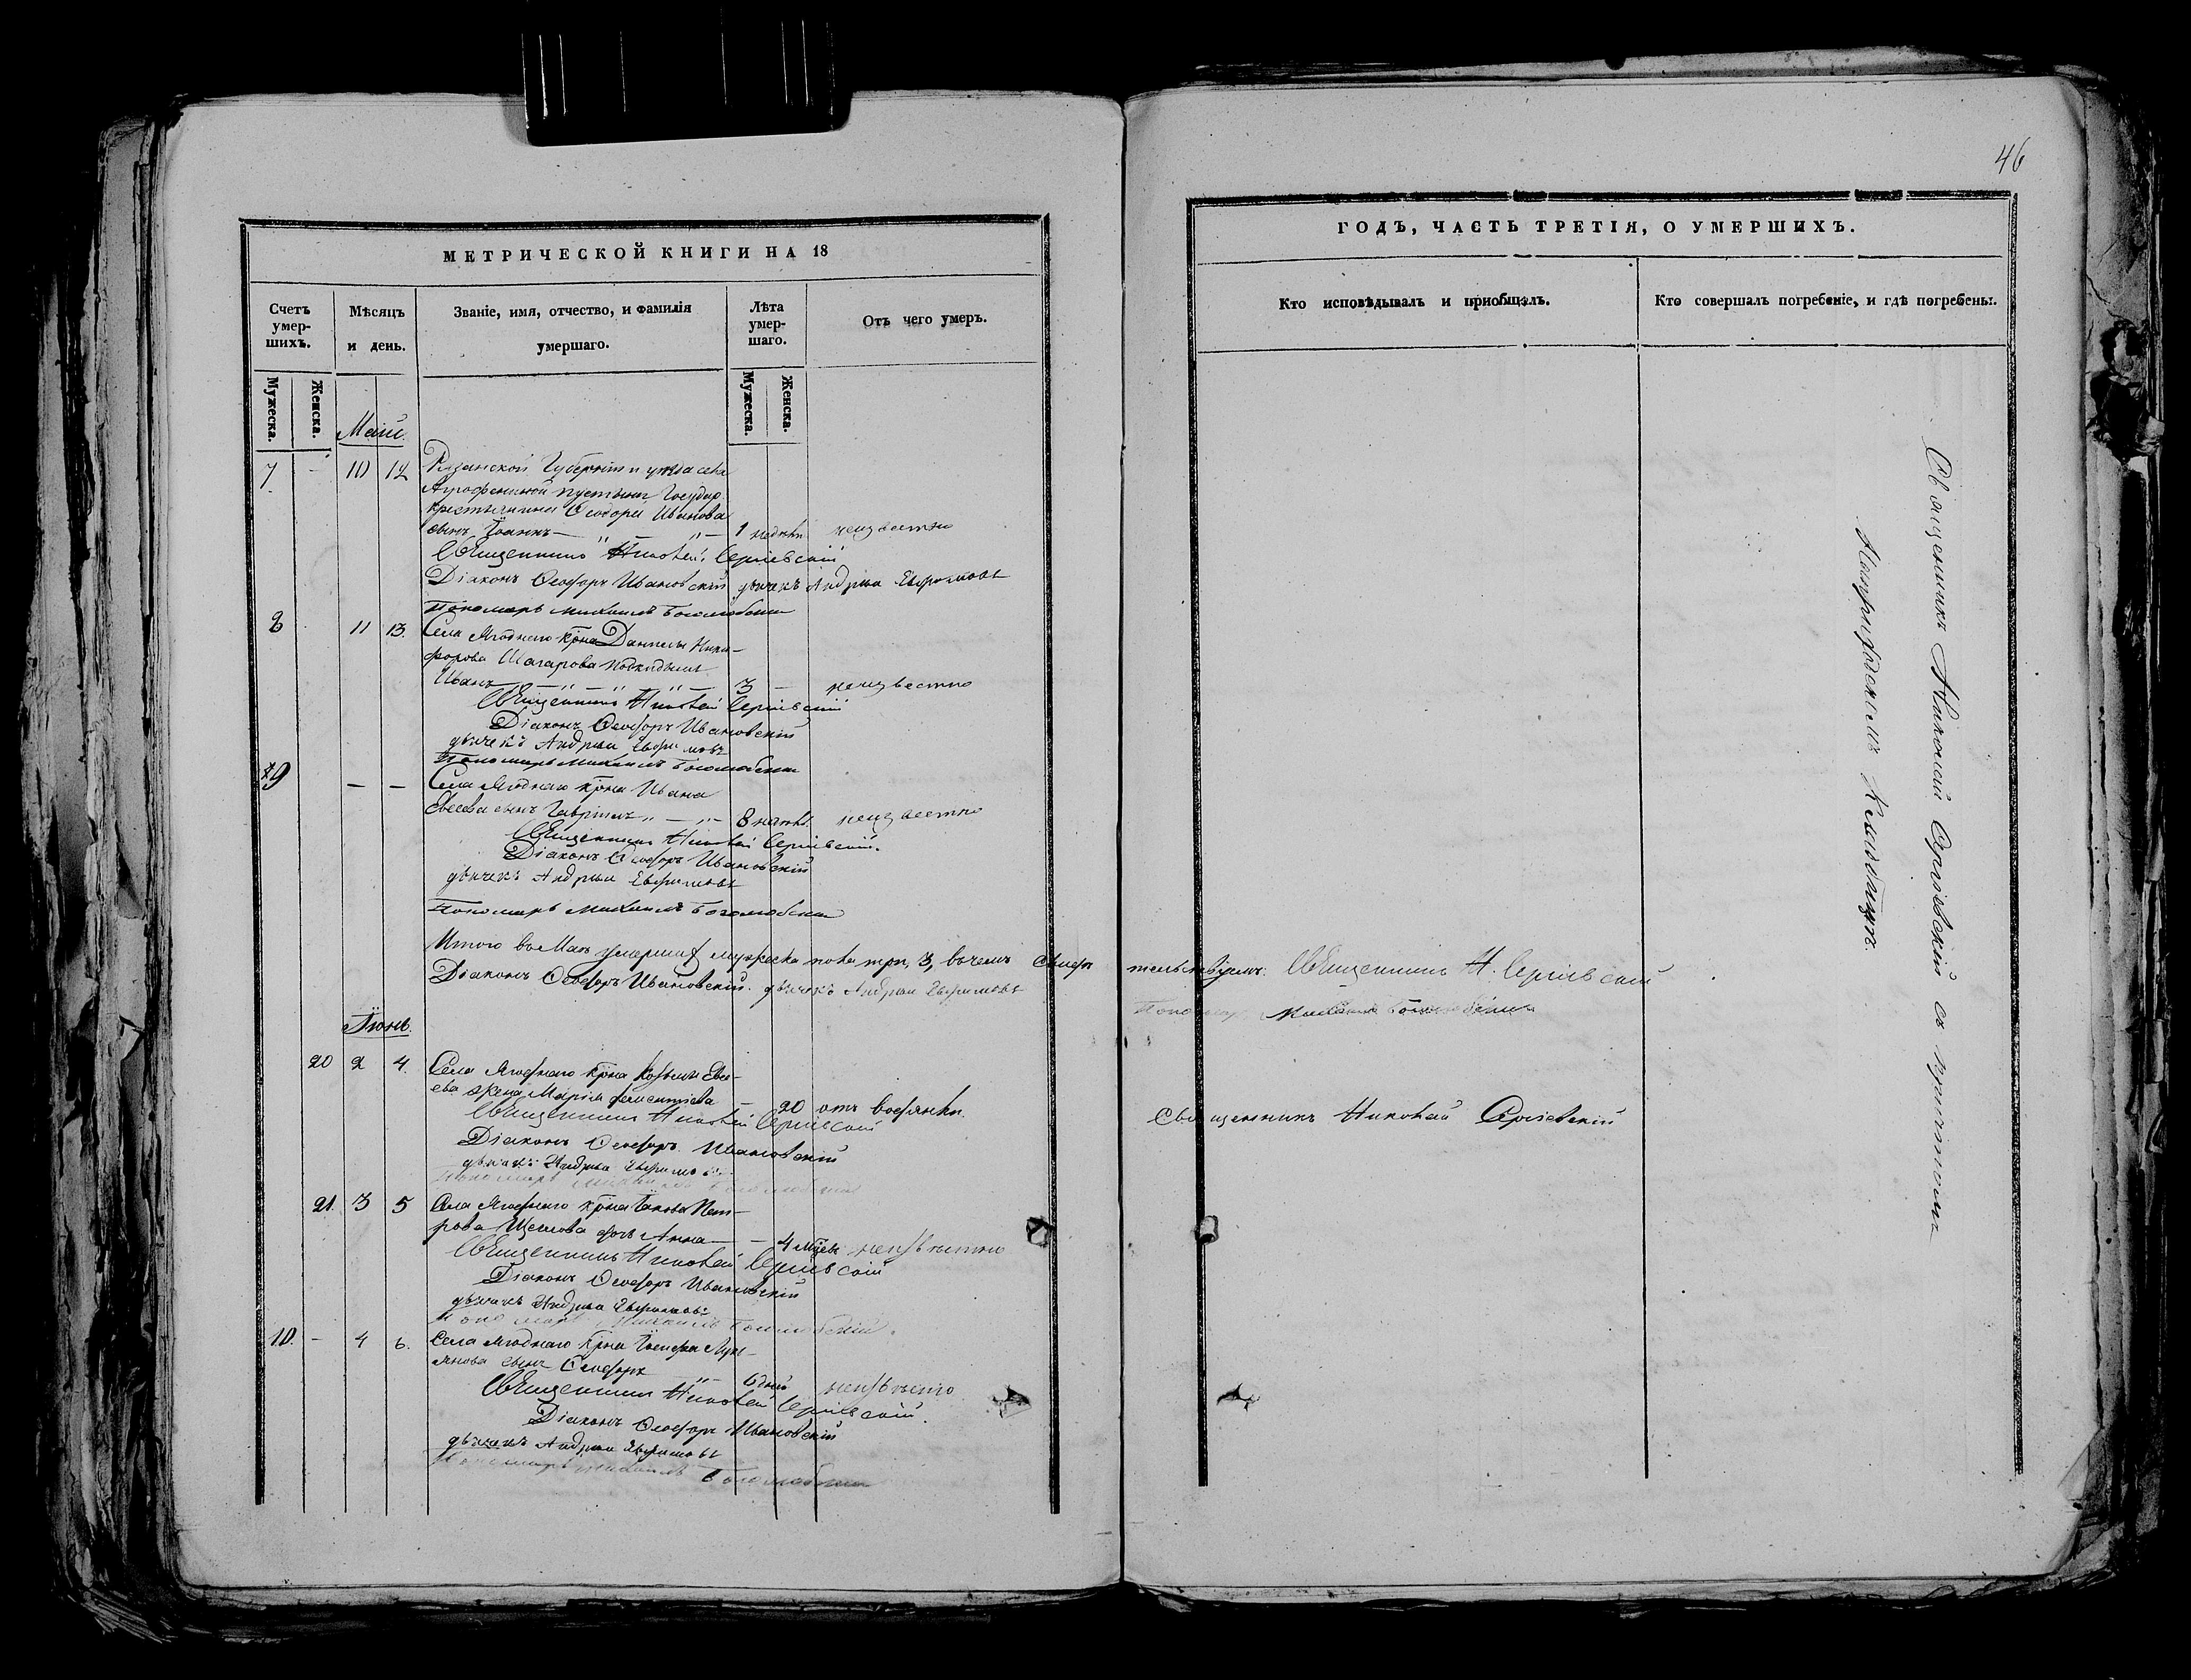 46
МЕТРИЧЕСКОЙ КНИГИ НА 18
ГОДЪ, ЧАСТЬ ТРЕТІЯ, О УМЕРШИХЪ.
Счетъ умер-шихъ.
Мѣсяцъ и день.
Званіе, имя, отчество, и фамилія умершаго.
Лѣта умер-шаго.
Отъ чего умеръ.
Кто исповѣдывалъ и приобщалъ.
Кто совершалъ погребеніе, и гдѣ погребены.
Мужеска.
Женска.
Мужеска.
Женска.
Маій.
7 - 10 12 Рязанской Губерніи и уезда села
Аграфениной пустыни Государ.
крестьянина Ѳеодора Иванова
сынъ Іоаннъ 1 недѣли неизвестно
Священникъ Николай Сергіевскій
Діаконъ Ѳеодоръ Ивановскій дьячекъ Андрей Евфимовъ
Пономарь Михаилъ Боголюбскій
8 11 13. Села Ягоднаго крѣна Данилы Ники-
форова Шагарова подкидышъ
Иванъ 3 - неизвестно
Священникъ Николай Сергіевскій
Діаконъ Ѳеодоръ Ивановскій
дьячекъ Андрей Евфимовъ
Пономарь Михаилъ Боголюбскій
9 — — Села Ягоднаго крѣна Ивана
Евсеева сынъ Гавріилъ 8 неизвестно
Священникъ Николай Сергіевскій.
Діаконъ Ѳеодоръ Ивановскій
дьячекъ Андрей Евфимовъ
Пономарь Михаилъ Боголюбскій
Итого въ Маѣ умершихъ мужеска пола три, 3, въ чемъ свидѣтельствуемъ: Священникъ Н. Сергіевскій
Діаконъ Ѳеодоръ Ивановскій. дьячекъ Андрей Евфимовъ
Пономарь Михаилъ Боголюбскій
Іюнь.
20 2 4. Села Ягоднаго крѣна Козьмы Евсе-
ева жена Марія - 20 отъ водянки.
Священникъ Николай Сергіевскій
Діаконъ Ѳеодоръ Ивановскій
дьячекъ Андрей Евфимовъ
Пономарь Михаилъ Боголюбскій
Священникъ Николай Сергіевскій
21. 3 5 Села Ягоднаго крѣна Іакова Пет-
рова дочь Анна — 4 мѣсяц неизвѣстно
Священникъ Николай Сергіевскій
Діаконъ Ѳеодоръ Ивановскій
дьячекъ Андрей Евфимовъ
Пономарь Михаилъ Боголюбскій.
10. - 4 6. Села Ягоднаго крѣна Іосифа Лукь-
янова сынъ Ѳеодоръ 6 дней неизвѣстно
Священникъ Николай Сергіевскій.
Діаконъ Ѳеодоръ Ивановскій
дьячекъ Андрей Евфимовъ
Пономарь Михаилъ Боголюбскій
Священникъ Николай Сергіевскій съ причтомъ
На приходскомъ кладбищѣ.